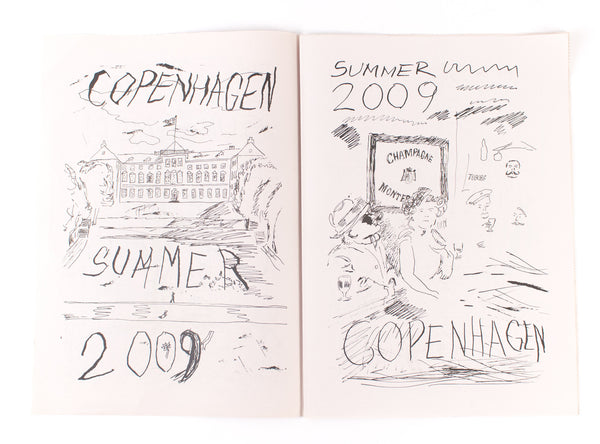 COPENHAGEN
SUMMER
2009
SUMMER
2009
CHAMPAGNE
COPENHAGEN